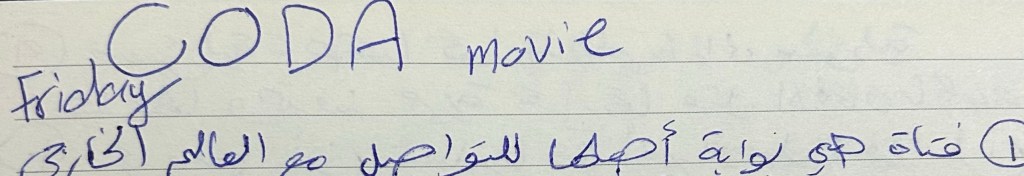 CODA movie
Friday
① فتاة هي بوابة أهلها للتواصل مع العالم الخارجي